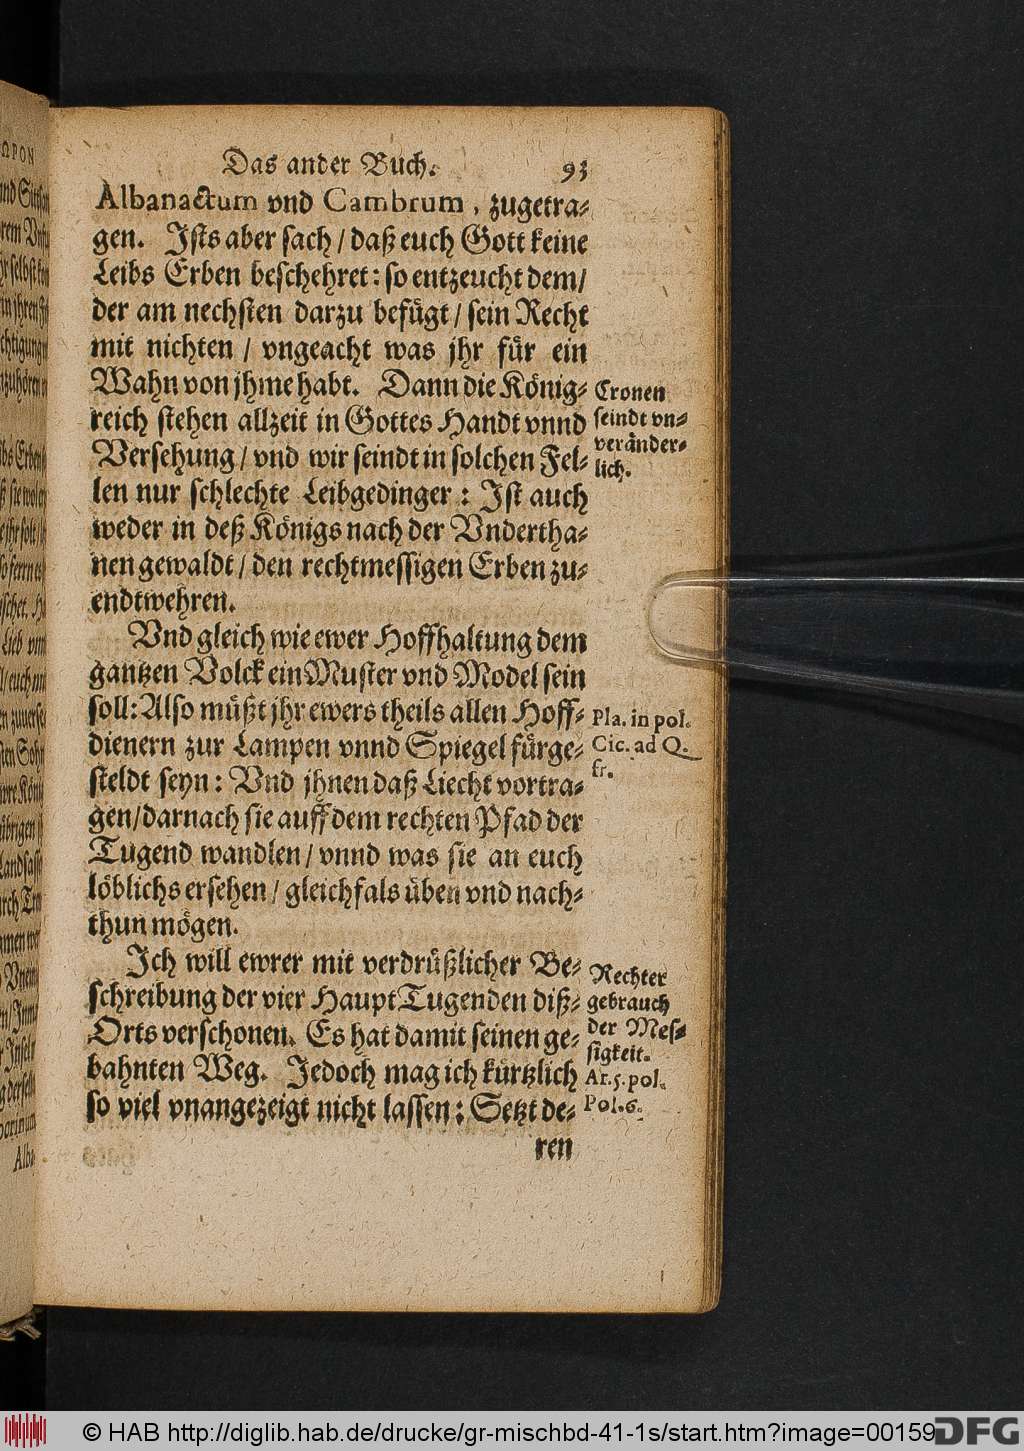 Das ander Buch. 93
Albanactum vnd Cambrum, zugetra-
gen. Ists aber sach / daß euch Gott keine
Leibs Erben beschehret: so entzeucht dem /
der am nechsten darzu befügt / sein Recht
mit nichten / vngeacht was jhr für ein
Wahn von jhme habt. Dann die König-
reich stehen allzeit in Gottes Handt vnnd
Versehung / vnd wir seindt in solchen Fel-
len nur schlechte Leibgedinger: Ist auch
weder in deß Königs nach der Vndertha-
nen gewaldt / den rechtmessigen Erben zu-
endtwehren.
Cronen
seindt vn-
veränder-
lich.
Vnd gleich wie ewer Hoffhaltung dem
gantzen Volck ein Muster vnd Model sein
soll: Also müßt jhr ewers theils allen Hoff-
dienern zur Lampen vnnd Spiegel fürge-
steldt seyn: Vnd jhnen daß Liecht vortra-
gen / darnach sie auff dem rechten Pfad der
Tugend wandlen / vnnd was sie an euch
löblichs ersehen / gleichfals üben vnd nach-
thun mögen.
Pla. in pol.
Cic. ad Q.
fr.
Ich will ewrer mit verdrüßlicher Be-
schreibung der vier Haupt Tugenden diß-
Orts verschonen. Es hat damit seinen ge-
bahnten Weg. Jedoch mag ich kürtzlich
so viel vnangezeigt nicht lassen: Setzt de-
ren
Rechter
gebrauch
der Mes-
sigkeit.
Ar. 5. pol.
Pol. 6.
© HAB http://diglib.hab.de/drucke/gr-mischbd-41-1s/start.htm?image=00159
DFG